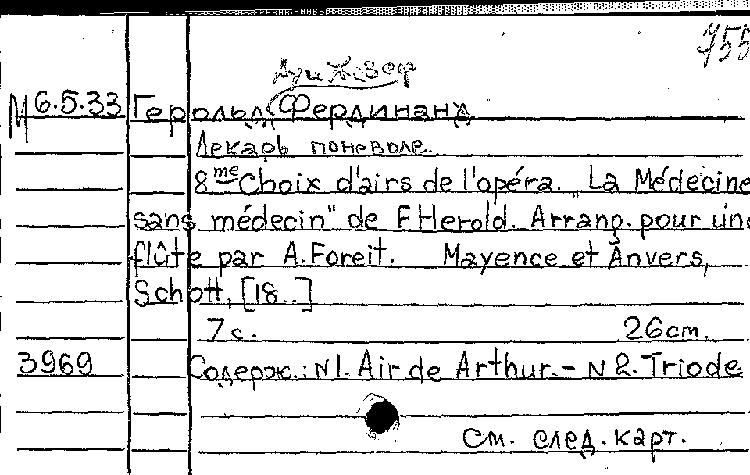 755
Луи Ж.зеф
М 6.5.33 Герольд, Фердинанд
Лекарь поневоле.
8me Choix d'airs de l'opéra. „La Médecine
sans médecin" de F. Herold. Arrang. pour une
flûte par A. Foreit. Mayence et Anvers,
Schott, [18..]
7 с. 26 cm.
3969 Содерж.: N1. Air de Arthur. – N 2. Triode
См. след. карт.